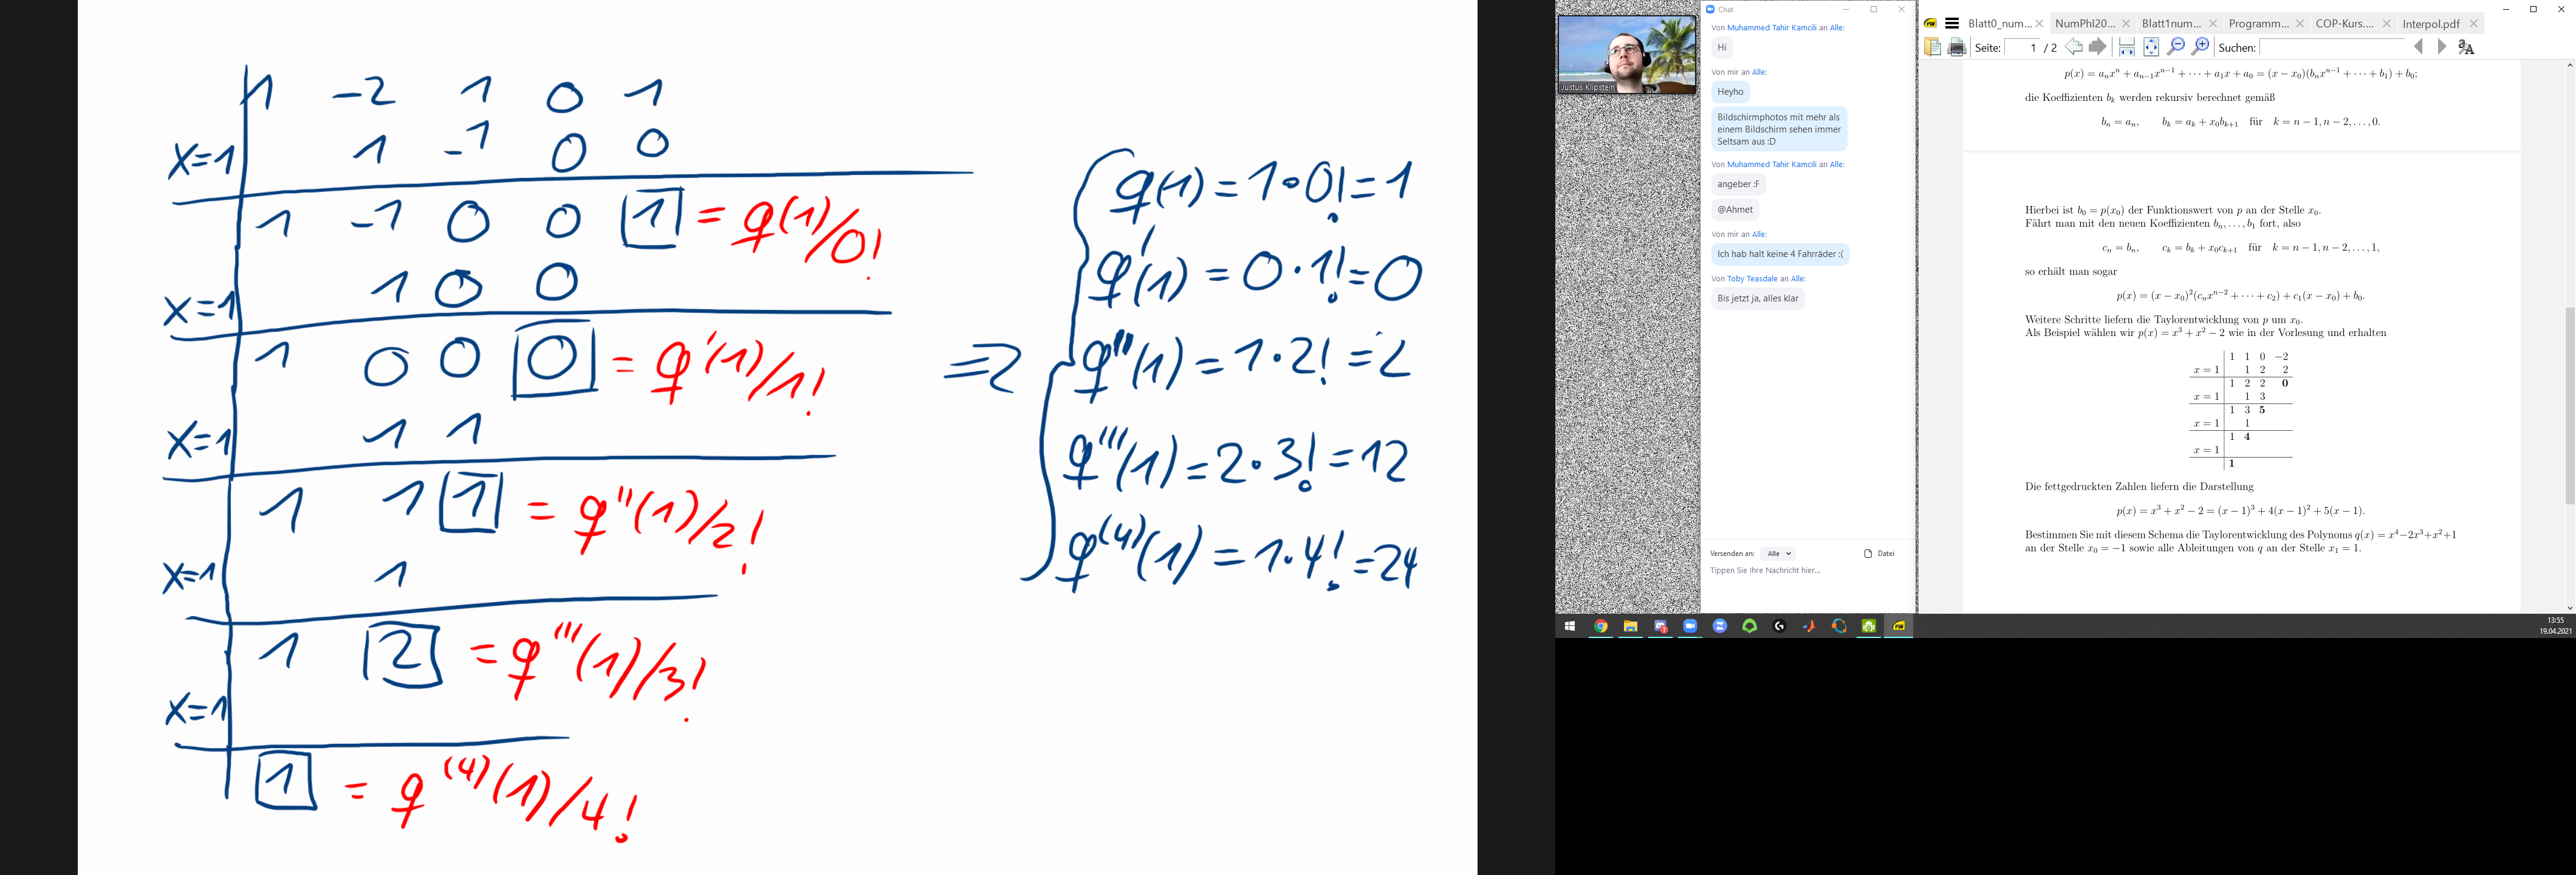 1 -2 1 0 1
x=1 1 -1 0 0
1 -1 0 0 1 = q(1)/0!
x=1 1 0 0
1 0 0 0 = q'(1)/1!
x=1 1 1
1 1 1 = q''(1)/2!
x=1 1
1 2 = q'''(1)/3!
x=1
1 = q^(4)(1)/4!
=> q(1) = 1·0! = 1
q'(1) = 0·1! = 0
q''(1) = 1·2! = 2
q'''(1) = 2·3! = 12
q^(4)(1) = 1·4! = 24
Justus Klipstein
Chat
Von Muhammed Tahir Kamcili an Alle:
Hi
Von mir an Alle:
Heyho
Bildschirmphotos mit mehr als
einem Bildschirm sehen immer
Seltsam aus :D
Von Muhammed Tahir Kamcili an Alle:
angeber :F
@Ahmet
Von mir an Alle:
Ich hab halt keine 4 Fahrräder :(
Von Toby Teasdale an Alle:
Bis jetzt ja, alles klar
Versenden an: Alle Datei
Tippen Sie Ihre Nachricht hier...
Blatt0_num... NumPhI20... Blatt1num... Programm... COP-Kurs.... Interpol.pdf
Seite: 1 / 2 Suchen:
p(x) = aₙxⁿ + aₙ₋₁xⁿ⁻¹ + ··· + a₁x + a₀ = (x − x₀)(bₙxⁿ⁻¹ + ··· + b₁) + b₀;
die Koeffizienten bₖ werden rekursiv berechnet gemäß
bₙ = aₙ, bₖ = aₖ + x₀bₖ₊₁ für k = n − 1, n − 2, . . . , 0.
Hierbei ist b₀ = p(x₀) der Funktionswert von p an der Stelle x₀.
Fährt man mit den neuen Koeffizienten bₙ, . . . , b₁ fort, also
cₙ = bₙ, cₖ = bₖ + x₀cₖ₊₁ für k = n − 1, n − 2, . . . , 1,
so erhält man sogar
p(x) = (x − x₀)²(cₙxⁿ⁻² + ··· + c₂) + c₁(x − x₀) + b₀.
Weitere Schritte liefern die Taylorentwicklung von p um x₀.
Als Beispiel wählen wir p(x) = x³ + x² − 2 wie in der Vorlesung und erhalten
1 1 0 −2
x = 1 1 2 2
1 2 2 0
x = 1 1 3
1 3 5
x = 1 1
1 4
x = 1
1
Die fettgedruckten Zahlen liefern die Darstellung
p(x) = x³ + x² − 2 = (x − 1)³ + 4(x − 1)² + 5(x − 1).
Bestimmen Sie mit diesem Schema die Taylorentwicklung des Polynoms q(x) = x⁴−2x³+x²+1
an der Stelle x₀ = −1 sowie alle Ableitungen von q an der Stelle x₁ = 1.
13:55
19.04.2021